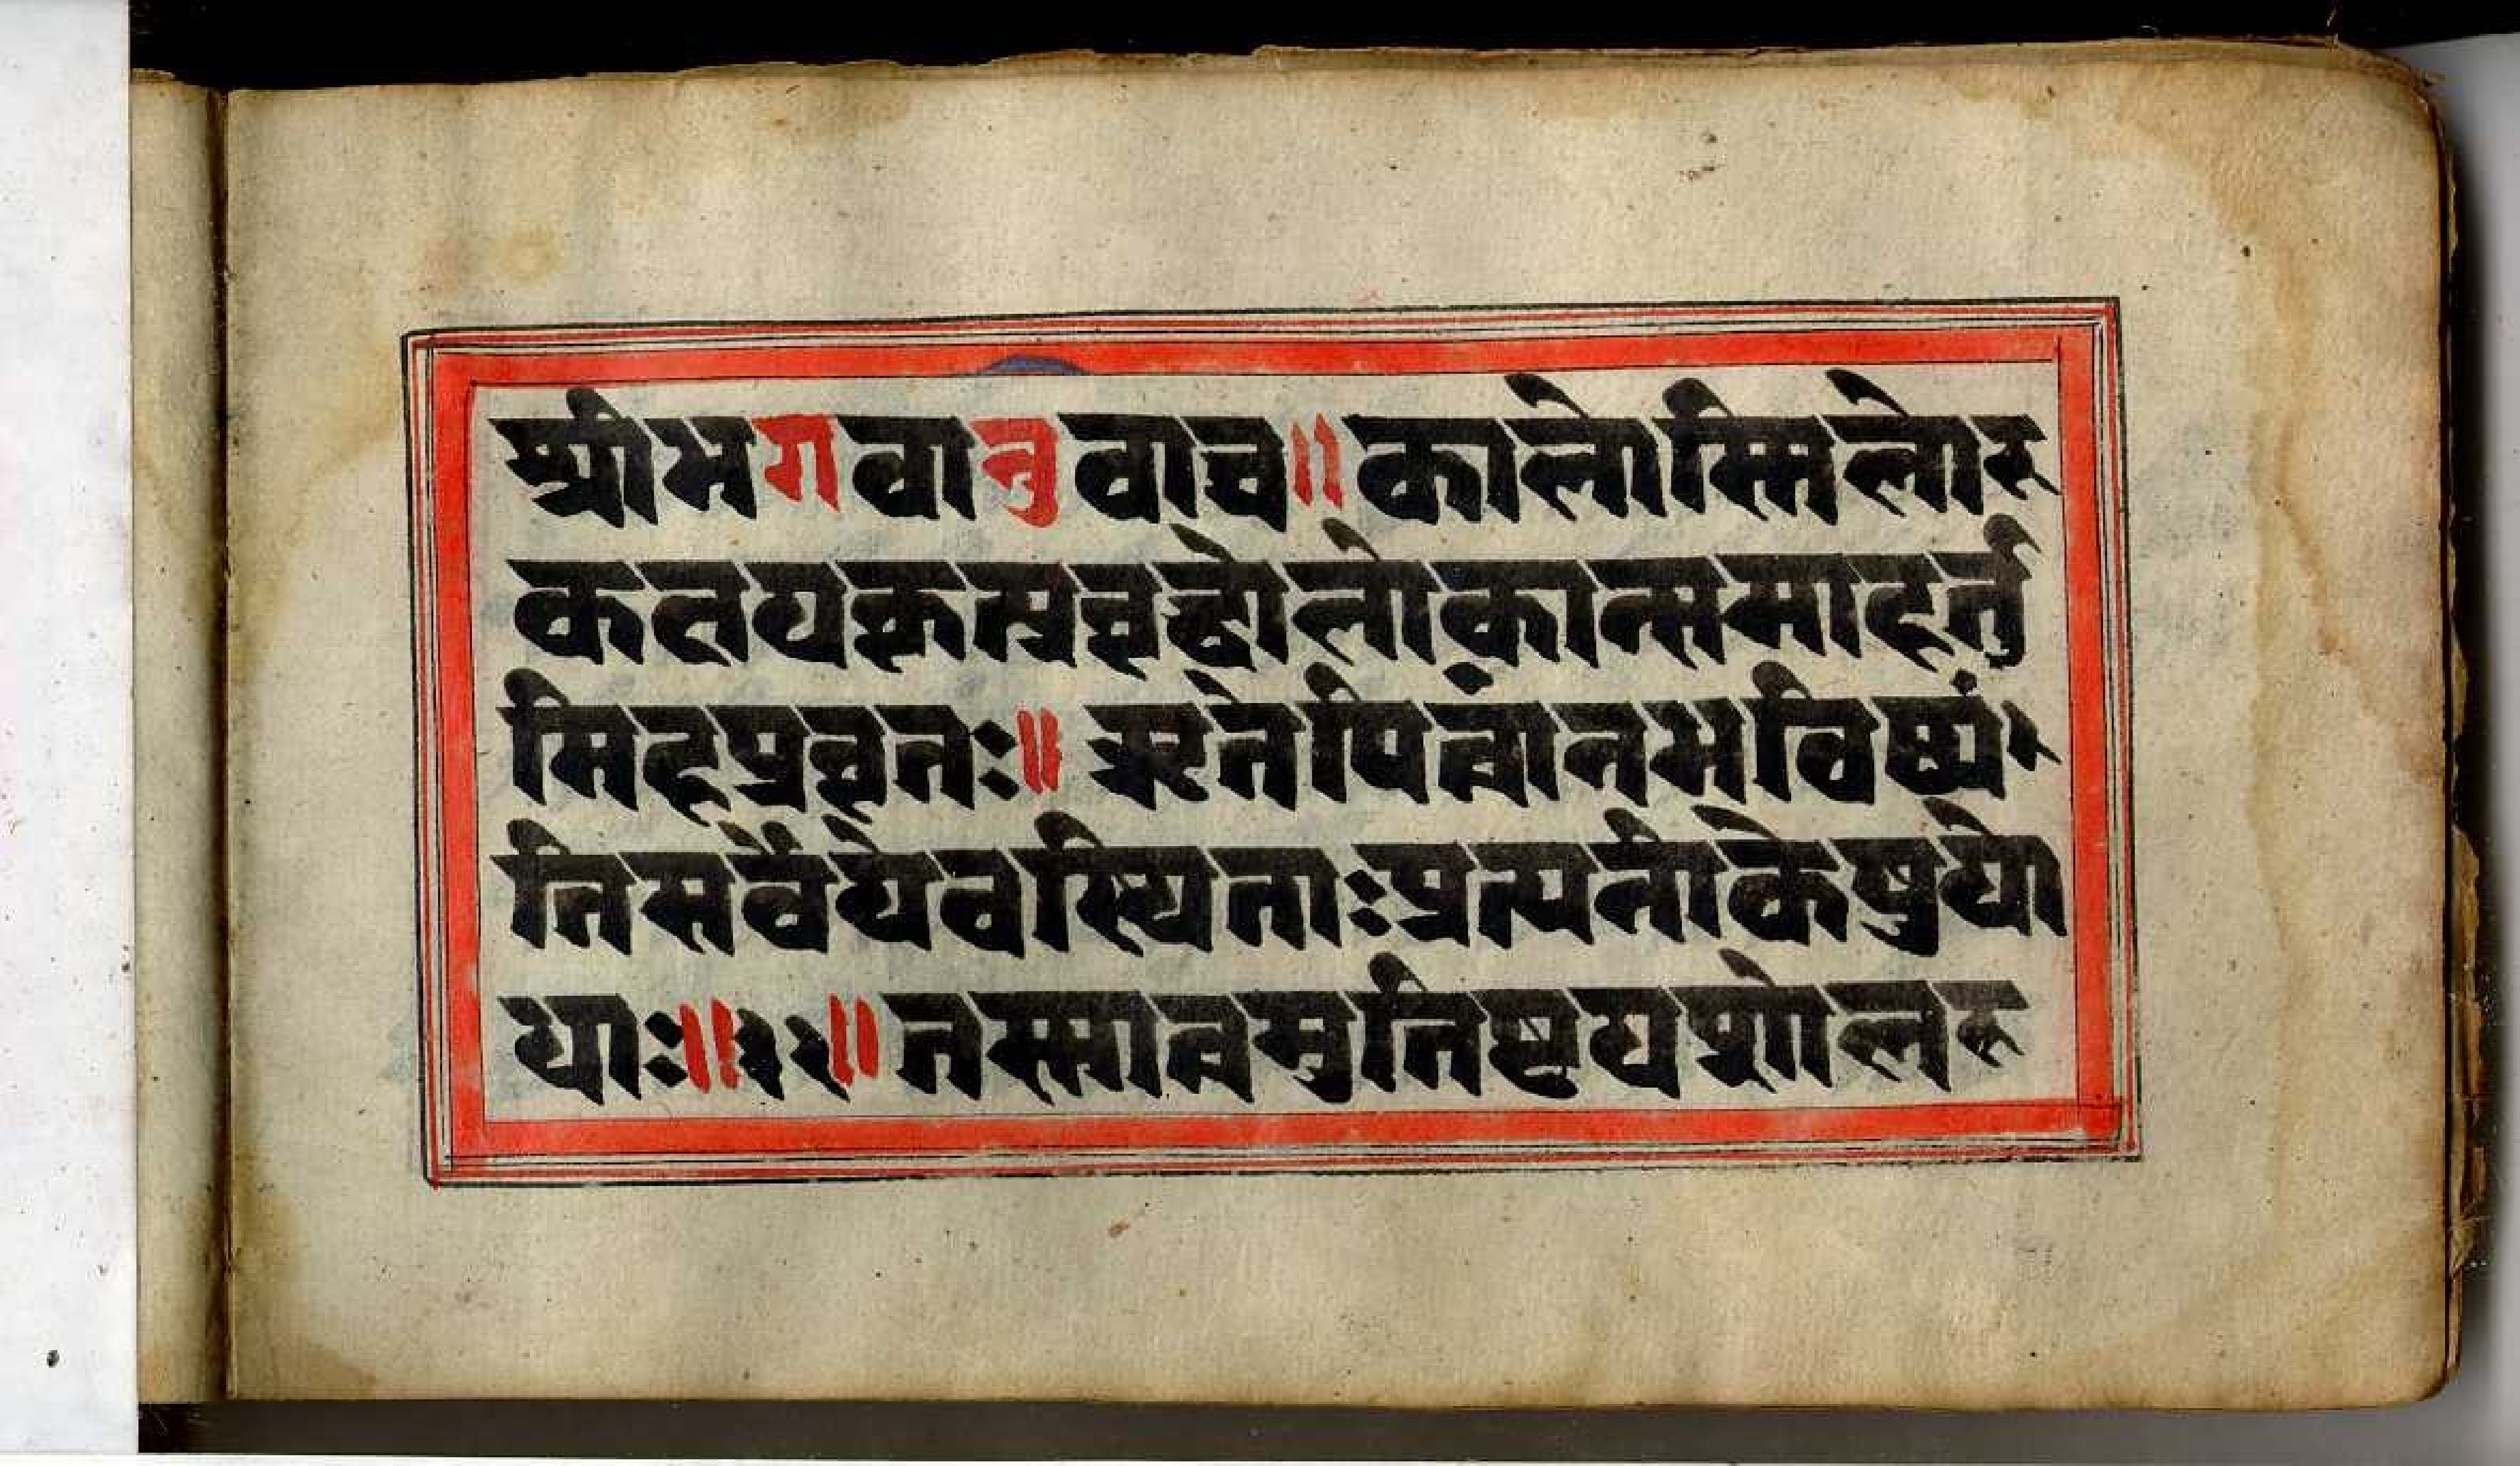 श्रीभगवानुवाच॥कालोस्मिलोक
कतयकृत्प्रवृद्धोलोकान्समाहर्तु
मिहप्रवृत्तः॥ऋतेपित्वांनभविष्यं
तिसर्वेयेवस्थिताःप्रत्यनीकेषुयो
धाः॥३२॥तस्मात्त्वमुतिष्टयशोलभ